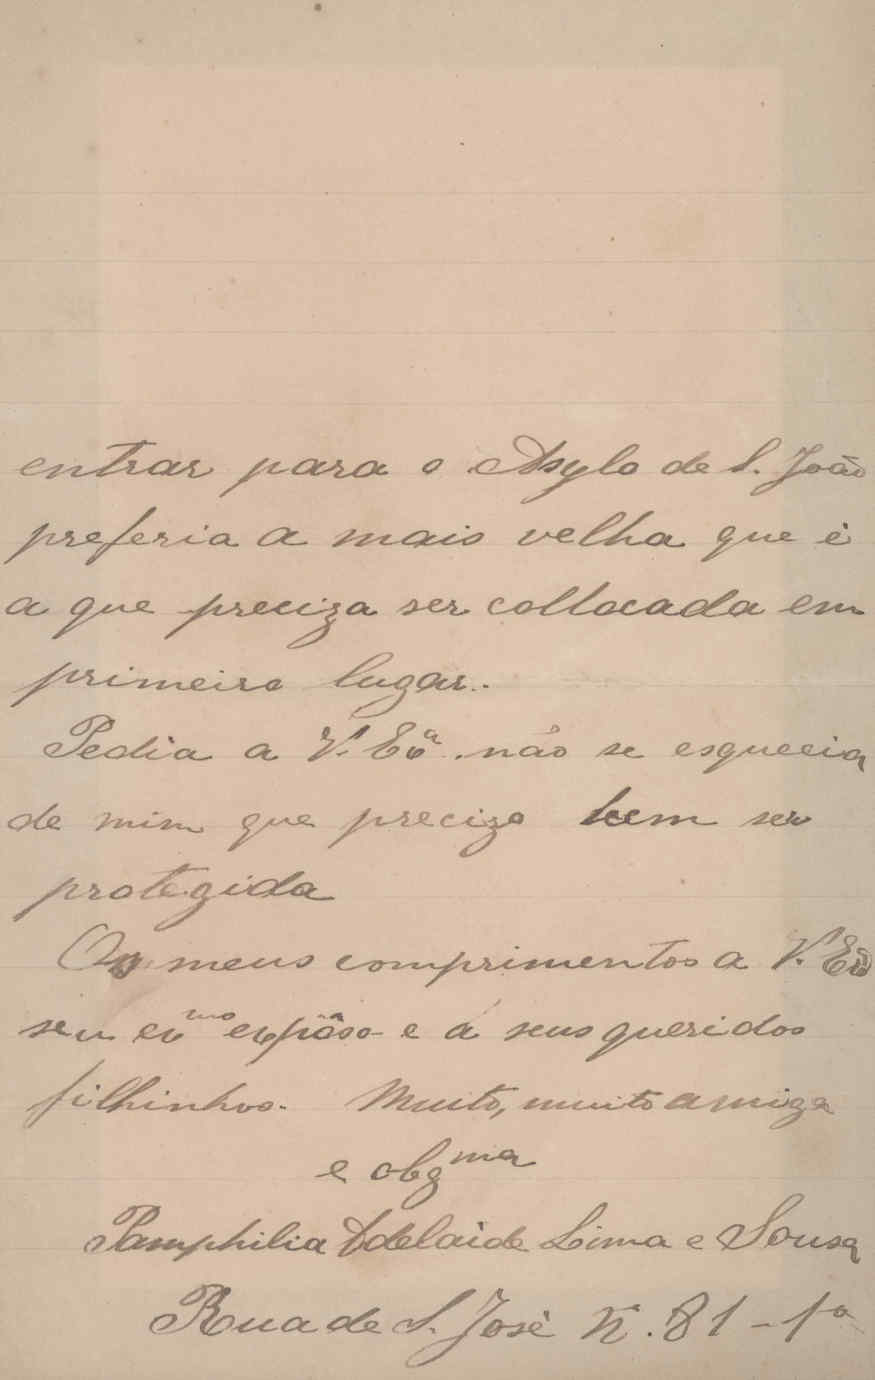 entrar para o Asylo de S. João
preferia a mais velha que é
a que preciza ser collocada em
primeiro lugar.
Pedia a V. Exª. não se esqueçia
de mim que precizo bem ser
protegida
Os meus comprimentos a V. Exª
seu exmo espôso e á seus queridos
filhinhos. Muito, muito amiga
e obgma
Pamphilia Adelaide Lima e Sousa
Rua de S. José Nº. 81 - 1º